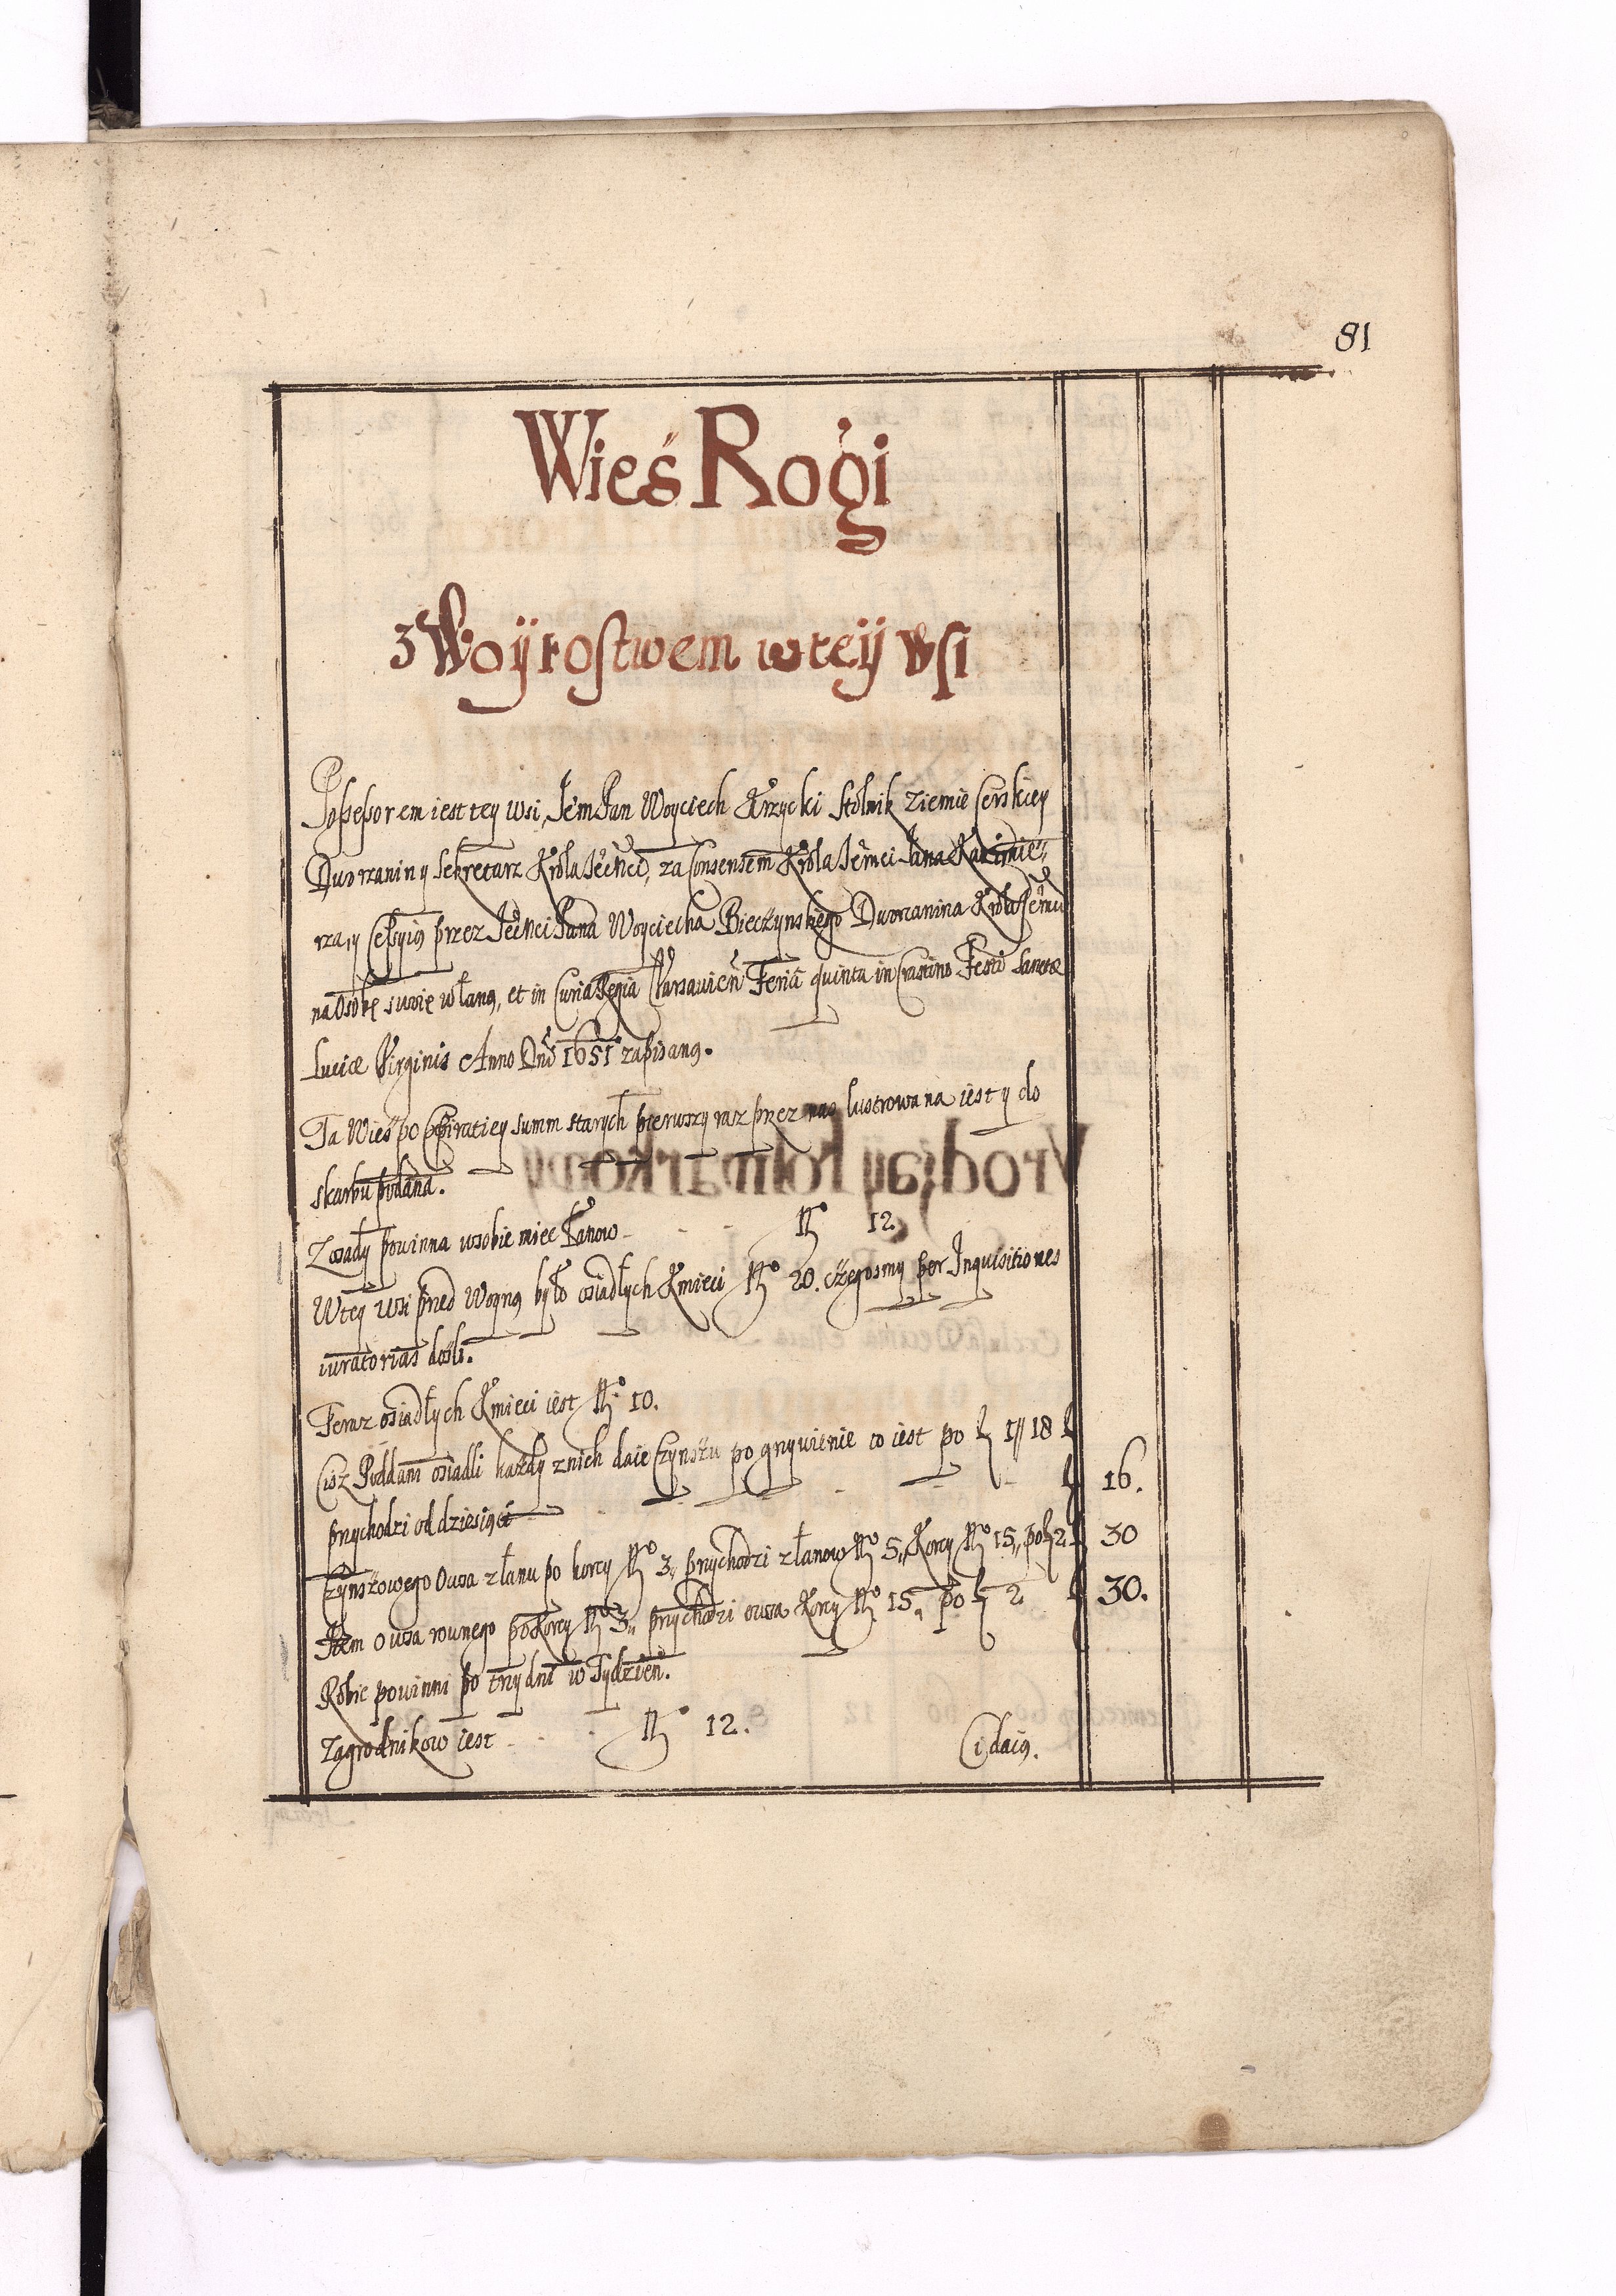 81
Wieś Rogi
z Woÿtostwem w teÿ wsi
Possessorem iest tey wsi, JemPan Woyciech Krzycki Stolnik Ziemie Cerskiey
Dworzanin y Sekretarz Krola Je͠mci, za Consensem Krola Jemci Jana Kazimie,,
rza, y Cessyią przez Je͠mci Pana Woyciecha Bieczynskiego Dworzanina Krola Jemci
na Osobę swoię wlaną, et in Curia Regia Varsavien Feria quinta in Crastino Festi Sanctæ
Luciæ Virginis Anno Dni 1651 zapisaną.
Ta Wieś po Expiratiey summ starych pierwszy raz przez nas lustrowana iest y do
skarbu podana.
Zosady powinna w sobie miec Łanow - - - No 12.
W tey wsi przed Woyną było osiadłych Kmieci No 20. czegosmy per Inquisitiones
iuratorias dośli.
Teraz osiadłych Kmieci iest No. 10.
Cisz Poddani osiadli każdy z nich daie Czynszu po grzywienie to iest po f 1// 18
przychodzi od dziesiąci - - - f 16.
Czynszowego Owsa z łanu po korcy No 3,, przychodzi z łanow No 5,, Korcy No 15,, po f 2 f 30
Item owsa rownego po Korcy No 3,, przychodzi owsa Korcy No 15, po f 2 f 30.
Robic powinni po trzy dni w Tydzien.
Zagrodnikow iest - - - No 12. Ci daią.